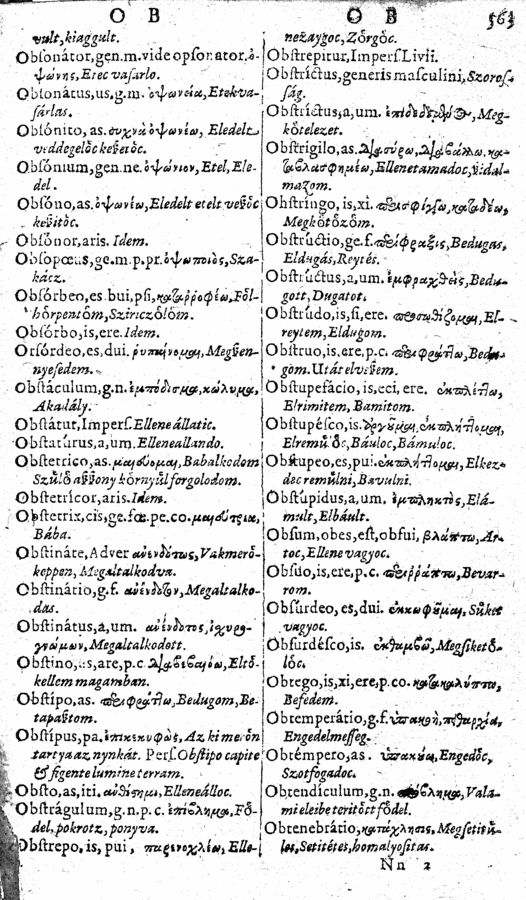 O B
O B
563
vult, kiaggult.
Obsonátor, gen. m. vide opsonator. ὀ-
ψώνης, Etec vasarlo.
Obsonátus, us, g. m. ὀψωνεία, Etek va-
sárlas.
Obsónito, as. συχνὰ ὀψωνέω, Eledelt
veddegelöc keßetöc.
Obsónium, gen. ne. ὀψώνιον, Etel, Ele-
del.
Obsóno, as. ὀψωνέω, Eledelt etelt veßöc
keßitöc.
Obsónor, aris. Idem.
Obsopœus, ge. m. p. pr. ὀψωποιὸς, Sza-
kácz.
Obsórbeo, es. bui, psi, καταρροφέω, Föl-
hörpentöm, Sziriczölöm.
Obsórbo, is, ere. Idem.
Obsórdeo, es, dui. ῥυπαίνομαι, Megßen-
nyesedem.
Obstáculum, g. n. ἐμπόδισμα, κώλυμα,
Akadály.
Obstátur, Impers. Ellene állatic.
Obstatúrus, a, um. Elleneallando.
Obstetrico, as. μαιεύομαι, Babalkodom
Szülö aßßony környül forgolodom.
Obstetrícor, aris. Idem.
Obstetrix, cis, ge. fœ. pe. co. μαιεύτρια,
Bába.
Obstináte, Adver αὐενδότως, Vakmerö-
keppen, Megaltalkodva.
Obstinátio, g. f. Megaltalko-
das.
Obstinátus, a, um. ἰσχυρο-
γνώμων, Megaltalkodott.
Obstino, as, are, p. c. διαβεβαιόω, Eltö-
kellem magamban.
Obstípo, as. περιφράττω, Bedugom, Be-
tapaßtom.
Obstípus, pa. ἐπικεκυφὼς, Az ki merön
tartya az nynkát. Pers. Obstipo capite
& figente lumine terram.
Obsto, as, iti. Elleneálloc.
Obstrágulum, g. n. p. c. ἐπίβλημα, Fö-
del, pokrotz, ponyva.
Obstrepo, is, pui, παρενοχλέω, Elle-
nezaygoc, Zörgöc.
Obstrepitur, Impers. Livii.
Obstríctus, generis masculini, Szoros-
ság.
Obstríctus, a, um. ἐπιδεδεμένος, Meg-
kötelezet.
Obstrigilo, as. διασύρω, διαβάλλω, κα-
ταβλασφημέω, Ellene tamadoc, Ridal-
mazom.
Obstríngo, is, xi. περισφίγγω, καταδέω,
Megkötözöm.
Obstrúctio, ge. f. περίφραξις, Bedugas,
Eldugás, Reytés.
Obstrúctus, a, um. ἐμφραχθεὶς, Bedu-
gott, Dugatot.
Obstrúdo, is, si, ere. El-
reytem, Eldugom.
Obstruo, is, ere, p. c. περιφράττω, Bedu-
gom. Utát elveßem.
Obstupefácio, is, eci, ere. ἐκπλέττω,
Elrimitem, Bamitom.
Obstupésco, is. ἐκπλήττομαι,
Elremülöc, Báuloc, Bámuloc.
Obstupeo, es, pui. ἐκπλήττομαι, Elkez-
dec remülni, Bavulni.
Obstúpidus, a, um. ἐμπληκτὸς, Elá-
mult, Elbáult.
Obsum, obes, est, obfui, βλάπτω, Ar-
toc, Ellene vagyoc.
Obsuo, is, ere, p. c. περιρράπτω, Bevar-
rom.
Obsurdeo, es, dui. ἐκκωφέομαι, Süket
vagyoc.
Obsurdésco, is. Megsiketö-
löc.
Obtego, is, xi, ere, p. co. κατακαλύπτω,
Befedem.
Obtemperátio, g. f. ὑπακοὴ, πειθαρχία,
Engedelmesseg.
Obtémpero, as. ὑπακούω, Engedöc,
Szotfogadoc.
Obtendículum, g. n. Vala-
mi eleibe teritött födel.
Obtenebrátio, κατάχλησις, Megsetitü-
les, Setitétes, homalyositas.
Nn 2